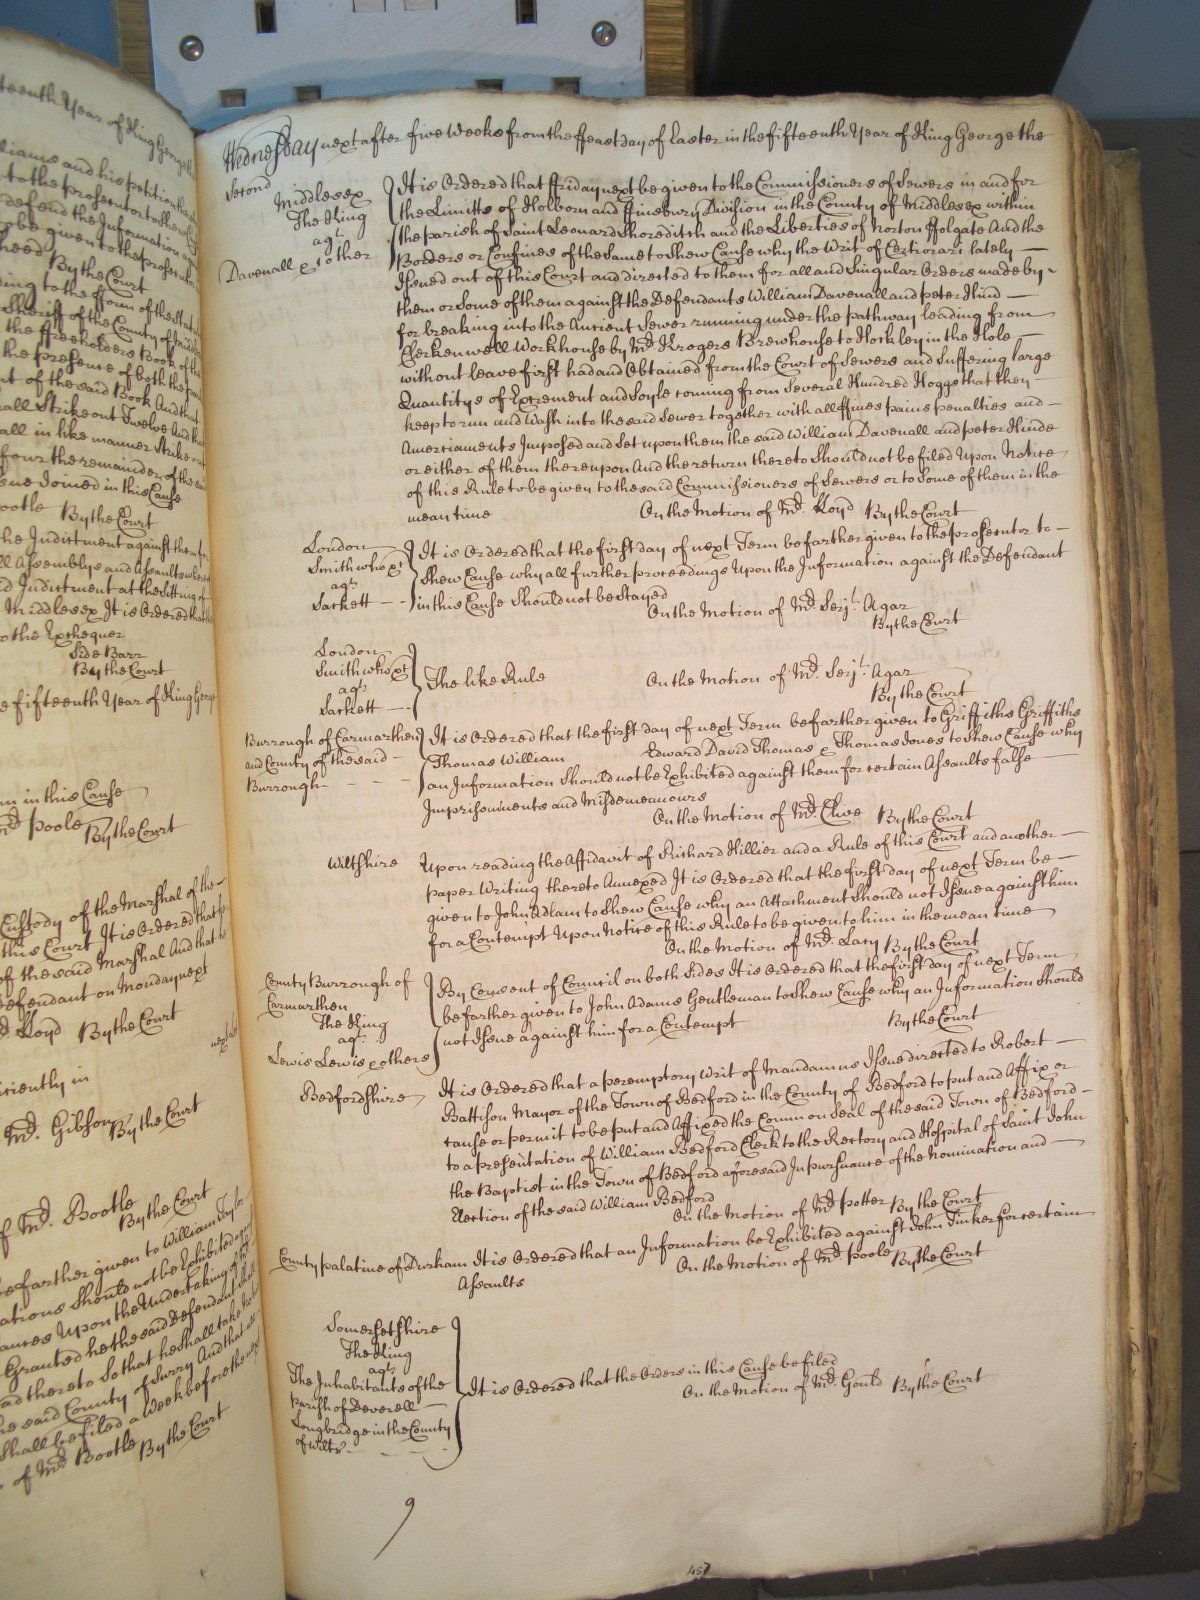 teenth Year of King George the
lliams and his petition
to the prosecutor to shew
defend the Information
to be given to the prosecutor
By the Court
ing to the fform of the Statute
Sheriff of the County of Middx
the ffreeholders Book of the
the presence of both the
nt of the said Book And that
all Strike out Twelve And that
all in like manner Strike out
four the remainder of the said
ssue Joined in this Cause
ootle By the Court
the Indictment against them for
ll Assemblys and Assaults
d Indictment at the Sitting of
Middlesex It is Ordered that
to the Exchequer
Side Barr
By the Court
e fifteenth Year of King George
m in this Cause
Mr. Poole By the Court
Custody of the Marshal of the
this Court It is Ordered that
of the said Marshal And that
Defendant on Monday next
Lloyd By the Court
next
iciently in
Mr. Gibson By the Court
of Mr. Bootle
By the Court
e farther given to William Taylor
ations Should not be Exhibited
ances Upon the Undertaking of
Granted he the said Defendant shall
ad thereto So that he shall take
he said County of Surry And that
Shall be filed a Week before the
of Mr. Bootle By the Court
Wednesday next after five Weeks from the ffeast day of Easter in the fifteenth Year of King George the
Second
Middlesex
The King
agt.
Davenall & other
It is Ordered that ffriday next be given to the Commissioners of Sewers in and for
the Limitts of Holborn and ffinsbury Division in the County of Middlesex within
the parish of Saint Leonard Shoreditch and the Liberties of Norton ffolgate And the
Borders or Confines of the Same to Shew Cause why the Writ of Certiorari lately
Issued out of this Court and directed to them for all and Singular Orders made by
them or Some of them against the Defendants William Davenall and peter Hind
for breaking into the Ancient Sewer running under the pathway leading from
Clerkenwell Workhouse by Mr. Krogers Brewhouse to Hockley in the Hole
without leave first had and Obtained from the Court of Sewers and Suffering large
Quantitys of Excrement and Soyle coming from Several Hundred Hoggs that they
keep to run and Wash into the said Sewer together with all ffines pains penalties and
Amerciaments Imposed and Set upon them the said William Davenall and peter Hinde
or either of them thereupon And the return thereto Should not be filed Upon Notice
of this Rule to be given to the said Commissioners of Sewers or to Some of them in the
mean time On the Motion of Mr. Lloyd By the Court
London
Smith who &c
agt.
Sackett
It is Ordered that the first day of next Term be farther given to the prosecutor to
Shew Cause why all further proceedings Upon the Information against the Defendant
in this Cause Should not be stayed
On the Motion of Mr. Serjt. Agar
By the Court
London
Smith who &c
agt.
Sackett
The like Rule On the Motion of Mr. Serjt. Agar
By the Court
Burrough of Carmarthen
and County of the said
Burrough
It is Ordered that the first day of next Term be farther given to Griffiths Griffiths
Thomas William Edward David Thomas & Thomas Jones to Shew Cause why
an Information Should not be Exhibited against them for certain Assaults false
Imprisonments and Misdemeanours
On the Motion of Mr. Clive By the Court
Wiltshire
Upon reading the Affidavit of Richard Hillier and a Rule of this Court and another
paper Writing thereto Annexed It is Ordered that the first day of next Term be
given to John Adlam to Shew Cause why an Attachment Should not Issue against him
for a Contempt Upon Notice of this Rule to be given to him in the mean time
On the Motion of Mr. Lacy By the Court
County Burrough of
Carmarthen
The King
agt.
Lewis Lewis & others
By Consent of Council on both Sides It is Ordered that the first day of next Term
be farther given to John Adams Gentleman to Shew Cause why an Information Should
not Issue against him for a Contempt By the Court
Bedfordshire
It is Ordered that a peremptory Writ of Mandamus Issue directed to Robert
Battison Mayor of the Town of Bedford in the County of Bedford to put and Affix or
cause or permit to be put and Affixed the Common Seal of the said Town of Bedford
to a presentation of William Bedford Clerk to the Rectory and Hospital of Saint John
the Baptist in the Town of Bedford aforesaid In pursuance of the Nomination and
Election of the said William Bedford
On the Motion of Mr. Potter By the Court
County palatine of Durham It is Ordered that an Information be Exhibited against John Tinker for certain
Assaults On the Motion of Mr. Poole By the Court
Somersetshire
The King
agt.
The Inhabitants of the
parish of Deverell
Longbridge in the County
of Wilts
It is Ordered that the Orders in this Cause be filed
On the Motion of Mr. Gould By the Court
9
457